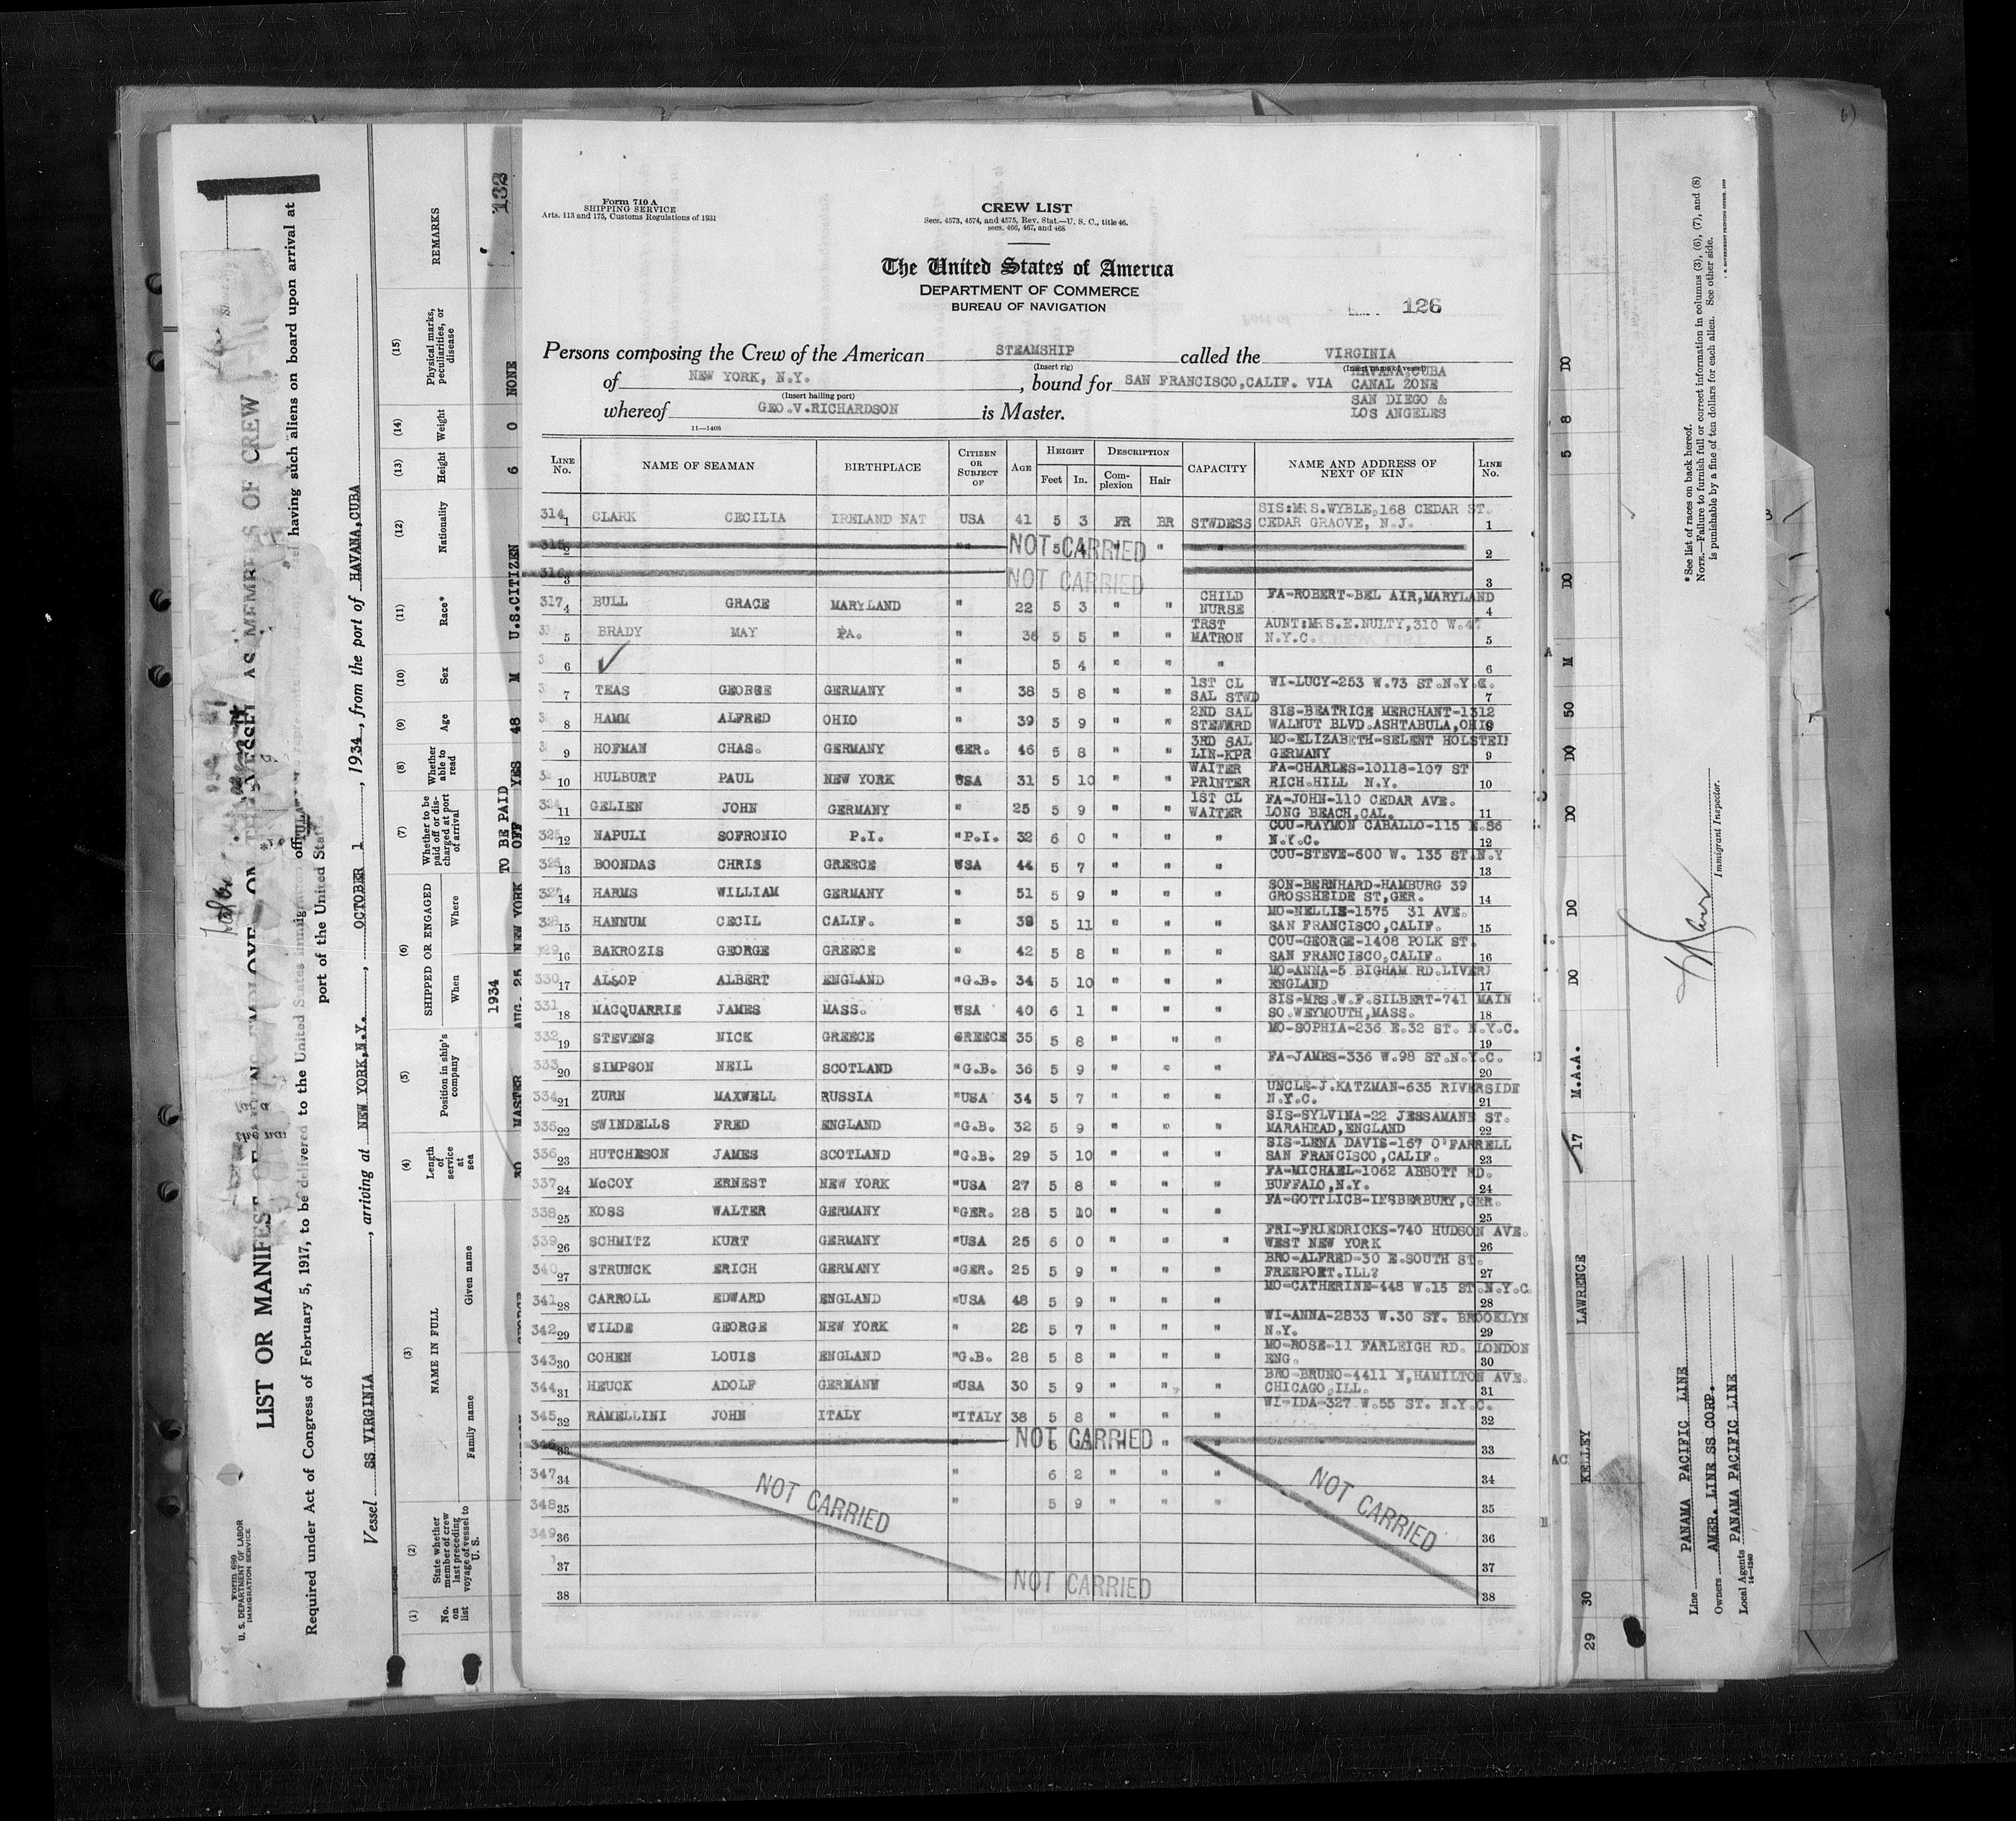 Form 710 A
SHIPPING SERVICE
Arts. 113 and 175, Customs Regulations of 1931
CREW LIST
Secs. 4573, 4574, and 4575, Rev. Stat.—U. S. C., title 46,
secs. 466, 467, and 468
The United States of America
DEPARTMENT OF COMMERCE
BUREAU OF NAVIGATION
126
Persons composing the Crew of the American STEAMSHIP called the VIRGINIA
(Insert rig) (Insert name of vessel)
of NEW YORK, N.Y. , bound for SAN FRANCISCO,CALIF. VIA HAVANA,CUBA
CANAL ZONE
(Insert hailing port)
SAN DIEGO &
whereof GEO.V.RICHARDSON is Master. LOS ANGELES
11—1408
LINE No. NAME OF SEAMAN BIRTHPLACE CITIZEN OR SUBJECT OF AGE HEIGHT Feet In. DESCRIPTION Complexion Hair CAPACITY NAME AND ADDRESS OF NEXT OF KIN LINE No.
314 1 CLARK CECILIA IRELAND NAT USA 41 5 3 FR BR STWDESS SIS:MRS.WYBLE,168 CEDAR ST. CEDAR GRAOVE, N.J. 1
315 2 NOT CARRIED 2
316 3 NOT CARRIED 3
317 4 BULL GRACE MARYLAND " 22 5 3 " " CHILD NURSE FA-ROBERT-BEL AIR,MARYLAND 4
5 BRADY MAY PA. " 36 5 5 " " TRST MATRON AUNT:MRS.E.NULTY,310 W.47 N.Y.C. 5
6 " 5 4 " " " 6
7 TEAS GEORGE GERMANY " 38 5 8 " " 1ST CL SAL STWD WI-LUCY-253 W.73 ST.N.Y.C. 7
8 HAMM ALFRED OHIO " 39 5 9 " " 2ND SAL STEWERD SIS-BEATRICE MERCHANT-1312 WALNUT BLVD.ASHTABULA,OHIO 8
9 HOFMAN CHAS. GERMANY GER. 46 5 8 " " 3RD SAL LIN-KPR MO-ELIZABETH-SELENT HOLSTEIN GERMANY 9
10 HULBURT PAUL NEW YORK USA 31 5 10 " " WAITER PRINTER FA-CHARLES-10118-107 ST RICH.HILL N.Y. 10
324 11 GELIEN JOHN GERMANY " 25 5 9 " " 1ST CL WAITER FA-JOHN-110 CEDAR AVE. LONG BEACH,CAL. 11
325 12 NAPULI SOFRONIO P.I. "P.I. 32 6 0 " " " COU-RAYMON CABALLO-115 E.86 N.Y.C. 12
326 13 BOONDAS CHRIS GREECE USA 44 5 7 " " " COU-STEVE-600 W. 135 ST.N.Y 13
327 14 HARMS WILLIAM GERMANY " 51 5 9 " " " SON-BERNHARD-HAMBURG 39 GROSSHEIDE ST,GER. 14
328 15 HANNUM CECIL CALIF. " 38 5 11 " " " MO-NELLIE-1575 31 AVE. SAN FRANCISCO,CALIF. 15
329 16 BAKROZIS GEORGE GREECE " 42 5 8 " " " COU-GEORGE-1408 POLK ST. SAN FRANCISCO,CALIF. 16
330 17 ALSOP ALBERT ENGLAND "G.B. 34 5 10 " " " MO-ANNA-5 BIGHAM RD.LIVER ENGLAND 17
331 18 MACQUARRIE JAMES MASS. USA 40 6 1 " " " SIS-MRS.W.F.SILBERT-741 MAIN SO.WEYMOUTH,MASS. 18
332 19 STEVENS NICK GREECE GREECE 35 5 8 " " " MO-SOPHIA-236 E.32 ST. N.Y.C. 19
333 20 SIMPSON NEIL SCOTLAND "G.B. 36 5 9 " " " FA-JAMES-336 W.98 ST.N.Y.C. 20
334 21 ZURN MAXWELL RUSSIA "USA 34 5 7 " " " UNCLE-J.KATZMAN-635 RIVERSIDE N.Y.C. 21
335 22 SWINDELLS FRED ENGLAND "G.B. 32 5 9 " " " SIS-SYLVINA-22 JESSAMANE ST. MARAHEAD,ENGLAND 22
336 23 HUTCHESON JAMES SCOTLAND "G.B. 29 5 10 " " " SIS-LENA DAVIS-167 O'FARRELL SAN FRANCISCO,CALIF. 23
337 24 McCOY ERNEST NEW YORK "USA 27 5 8 " " " FA-MICHAEL-1062 ABBOTT RD. BUFFALO,N.Y. 24
338 25 KOSS WALTER GERMANY "GER. 28 5 10 " " " FA-GOTTLICB-INSBERBURY,GER. 25
339 26 SCHMITZ KURT GERMANY "USA 25 6 0 " " " FRI-FRIEDRICKS-740 HUDSON AVE. WEST NEW YORK 26
340 27 STRUNCK ERICH GERMANY "GER. 25 5 9 " " " BRO-ALFRED-30 E.SOUTH ST. FREEPORT.ILL? 27
341 28 CARROLL EDWARD ENGLAND "USA 48 5 9 " " " MO-CATHERINE-448 W.15 ST.N.Y.C. 28
342 29 WILDE GEORGE NEW YORK " 28 5 7 " " " WI-ANNA-2833 W.30 ST. BROOKLYN N.Y. 29
343 30 COHEN LOUIS ENGLAND "G.B. 28 5 8 " " " MO-ROSE-11 FARLEIGH RD. LONDON ENG. 30
344 31 HEUCK ADOLF GERMANY "USA 30 5 9 " " " BRO-BRUNO-4411 N,HAMILTON AVE. CHICAGO,ILL. 31
345 32 RAMELLINI JOHN ITALY "ITALY 38 5 8 " " " WI-IDA-327 W.55 ST. N.Y.C. 32
346 33 NOT CARRIED 33
347 34 " 6 2 " " " 34
348 35 NOT CARRIED " 5 9 " " " NOT CARRIED 35
349 36 36
37 37
38 NOT CARRIED 38
Form 680
U. S. DEPARTMENT OF LABOR
IMMIGRATION SERVICE
LIST OR MANIFEST OF AS MEMBERS OF CREW
Required under Act of Congress of February 5, 1917, to be delivered to the United States immigration having such aliens on board upon arrival at
port of the United States
Vessel SS VIRGINIA , arriving at NEW YORK,N.Y. , OCTOBER 1 , 1934, from the port of HAVANA,CUBA
(1) No. on list
(2) State whether member of crew last preceding voyage of vessel to U. S.
(3) NAME IN FULL Family name Given name
(4) Length of service at sea
(5) Position in ship's company
(6) SHIPPED OR ENGAGED When Where
(7) Whether to be paid off or discharged at port of arrival
(8) Whether able to read
(9) Age
(10) Sex
(11) Race*
(12) Nationality
(13) Height
(14) Weight
(15) Physical marks, peculiarities, or disease
REMARKS
132
30 MASTER 1934 AUG. 25 NEW YORK TO BE PAID OFF YES 48 M U.S.CITIZEN 6 0 NONE
29 30 KELLEY LAWRENCE 17 M.A.A. DO DO DO DO 50 M DO 5 8 DO
Line PANAMA PACIFIC LINE
Owners AMER. LINE SS CORP.
Local Agents PANAMA PACIFIC LINE
14—1240
Immigrant Inspector.
* See list of races on back hereof.
NOTE.—Failure to furnish full or correct information in columns (3), (6), (7), and (8)
is punishable by a fine of ten dollars for each alien. See other side.